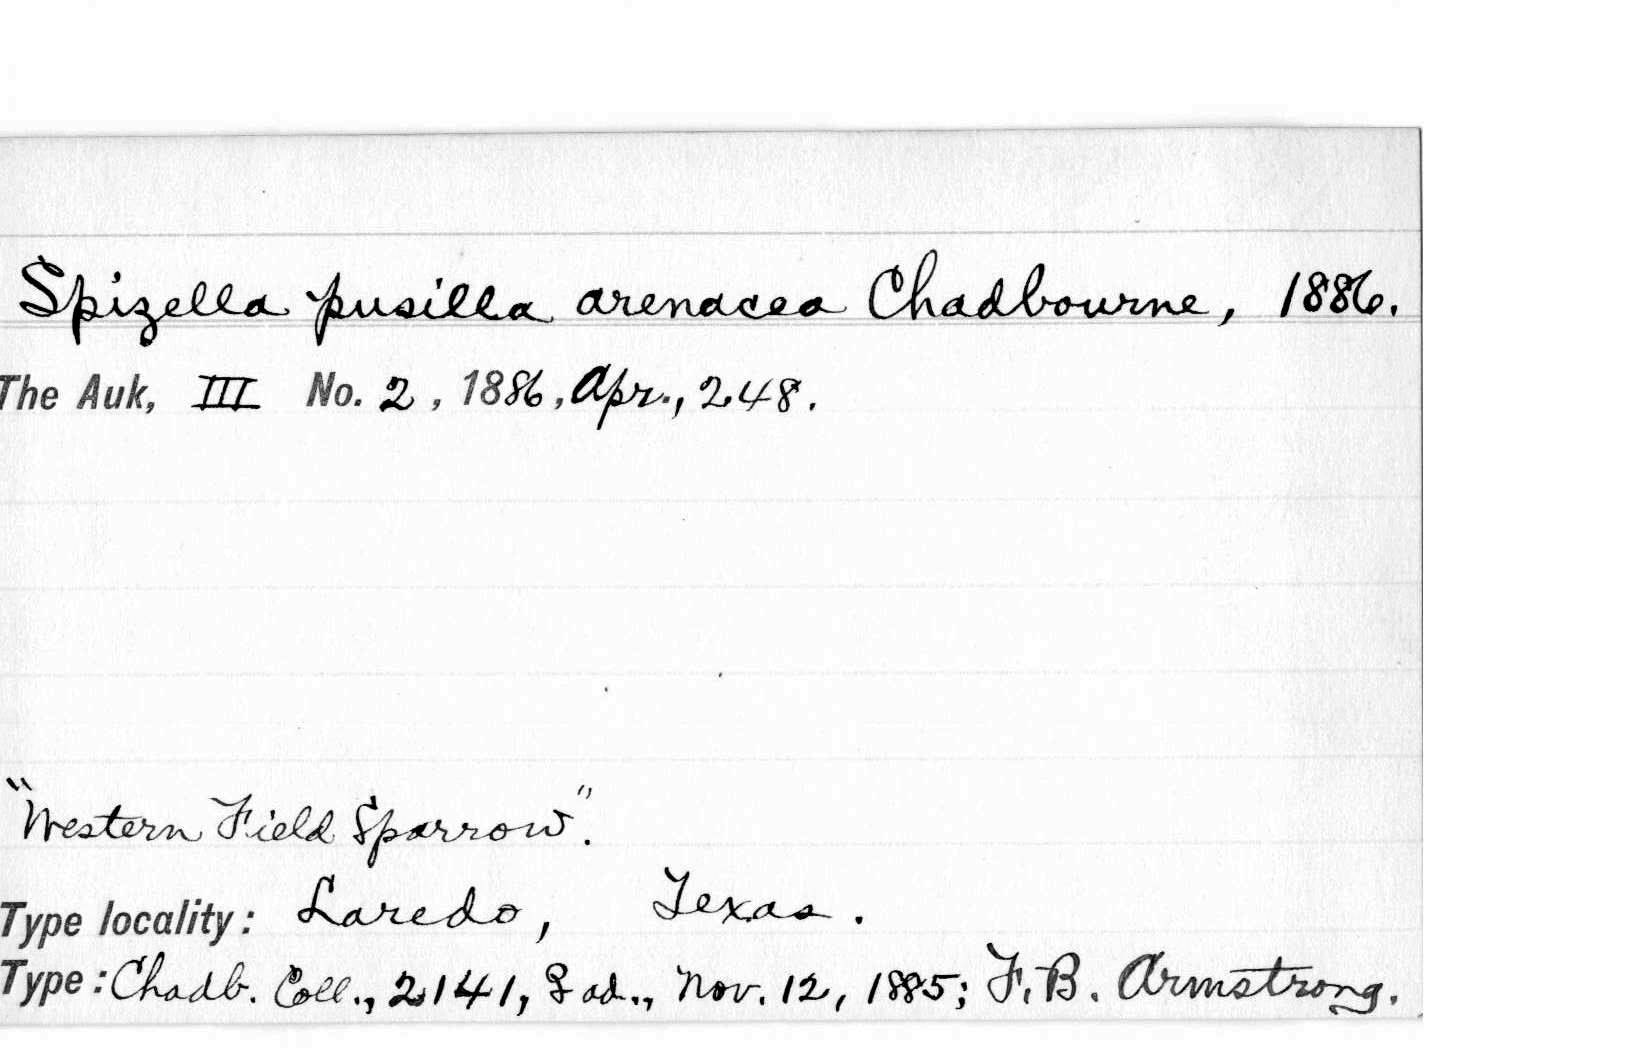 Spizella pusilla arenacea Chadbourne, 1886.
The Auk, III No. 2, 1886, Apr., 248.
"Western Field Sparrow".
Type locality: Laredo, Texas.
Type: Chadb. Coll., 2141, ad., Nov. 12, 1885; F. B. Armstrong.